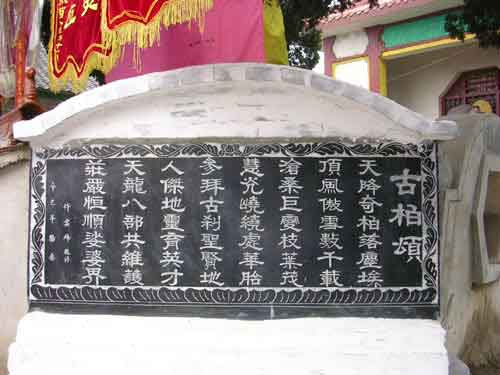 古柏頌
天降奇柏落塵埃
頂風傲雪數千載
滄桑巨變枝葉茂
慧光嶢繞處華胎
參拜古刹聖賢地
人傑地靈育英才
天龍八部共維護
莊嚴恒順娑婆界